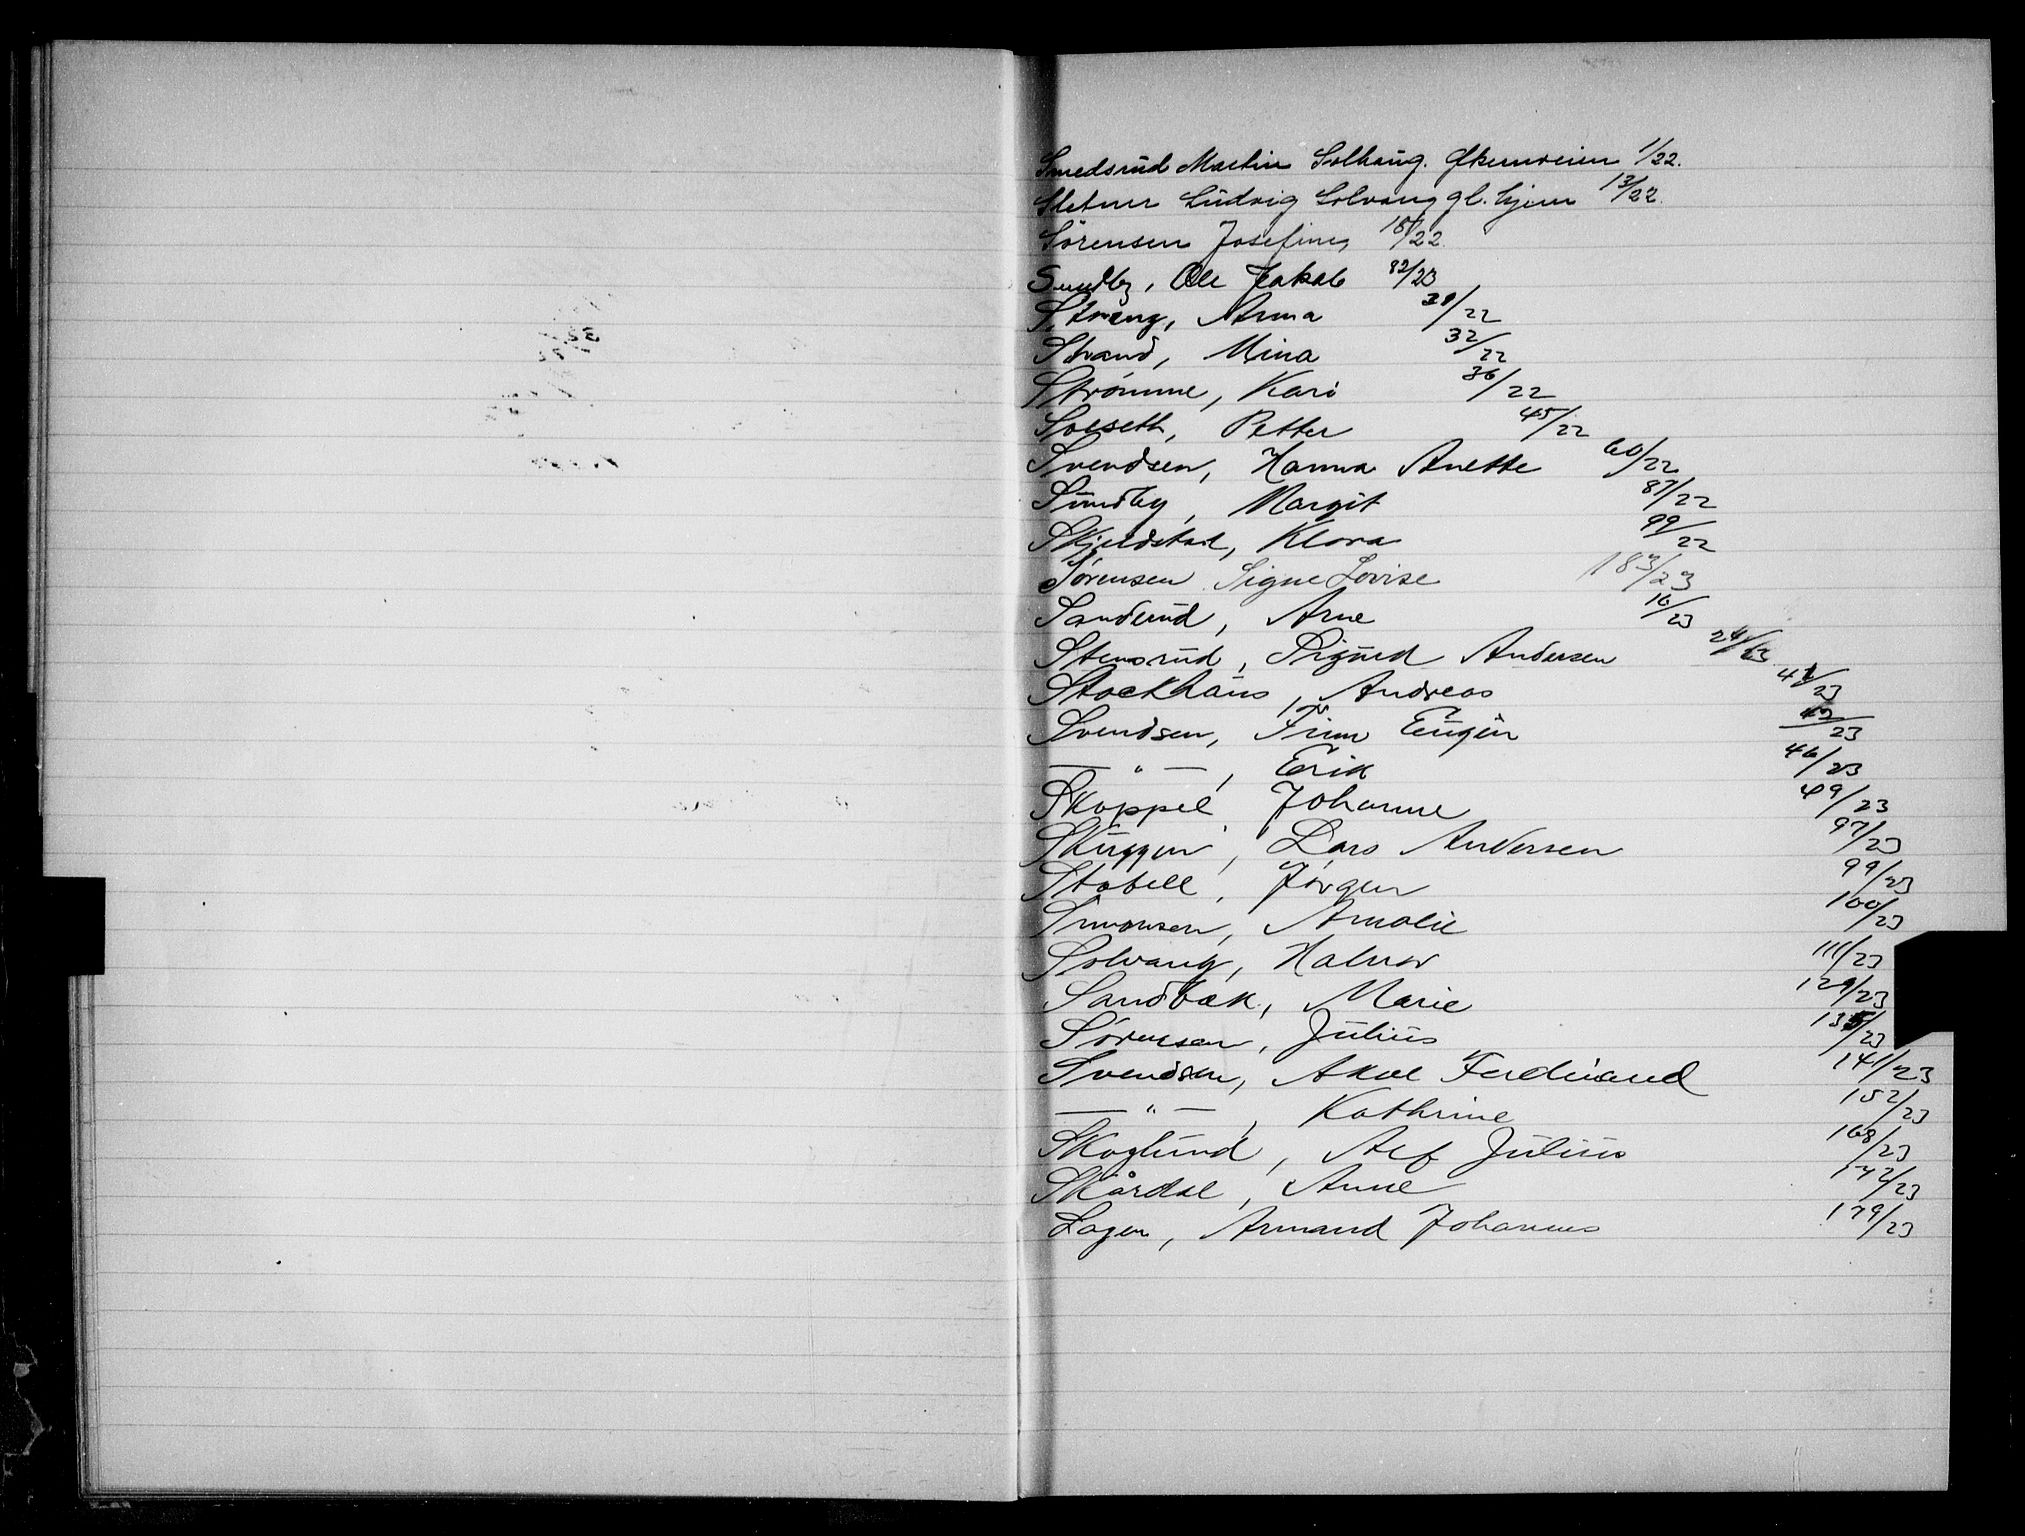 Smedsrud Martin Solhaug. Økernveien 1/22.
Sletner Ludvig Solvang gl. hjem 13/22.
Sørensen Josefine, 18/22.
Sundby, Ole Jakob 82/23
Strang, Anna /22
Strand, Mina 32/22
Strømme, Kari 36/22
Solseth, Petter 45/22
Svendsen, Hanna Anette 60/22
Sundby, Margit 87/22
Skjeldstad, Klara 99/22
Sørensen Signe Lovise 183/23
Sanderud, Arne 16/23
Stensrud, Sigurd Andersen 24/23
Stockhaus, Andreas /23
Svendsen, Finn Eugen 42/23
— " —, Erik 46/23
Skoppel, Johanne 49/23
Skuggen, Lars Andersen 97/23
Stabell, Jørgen 99/23
Simonsen, Amalie 100/23
Solvang, Halvor 111/23
Sandbæk, Marie 129/23
Sørensen, Julius 135/23
Svendsen, Aksel Ferdinand 141/23
— " —, Kathrine 152/23
Skoglund, Alf Julius 168/23
Skårdal, Anne 172/23
Sagen, Armand Johannes 179/23